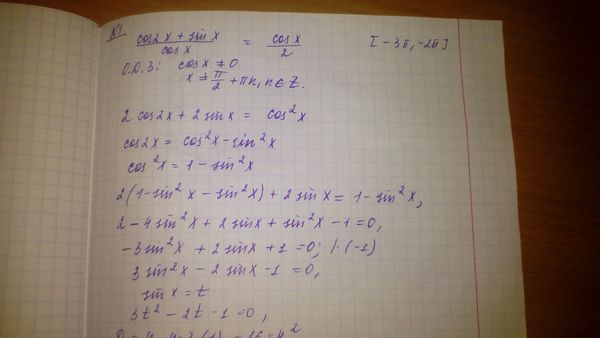 N1
(cos2x + sin x)/cos x = cos x/2 [-3π, -2π]
О.Д.З: cos x ≠ 0
x ≠ π/2 + πn, n ∈ Z.
2 cos2x + 2 sin x = cos²x
cos2x = cos²x - sin²x
cos²x = 1 - sin²x
2(1 - sin²x - sin²x) + 2 sin x = 1 - sin²x,
2 - 4 sin²x + 2 sin x + sin²x - 1 = 0,
-3 sin²x + 2 sin x + 1 = 0; |·(-1)
3 sin²x - 2 sin x - 1 = 0,
sin x = t
3t² - 2t - 1 = 0,